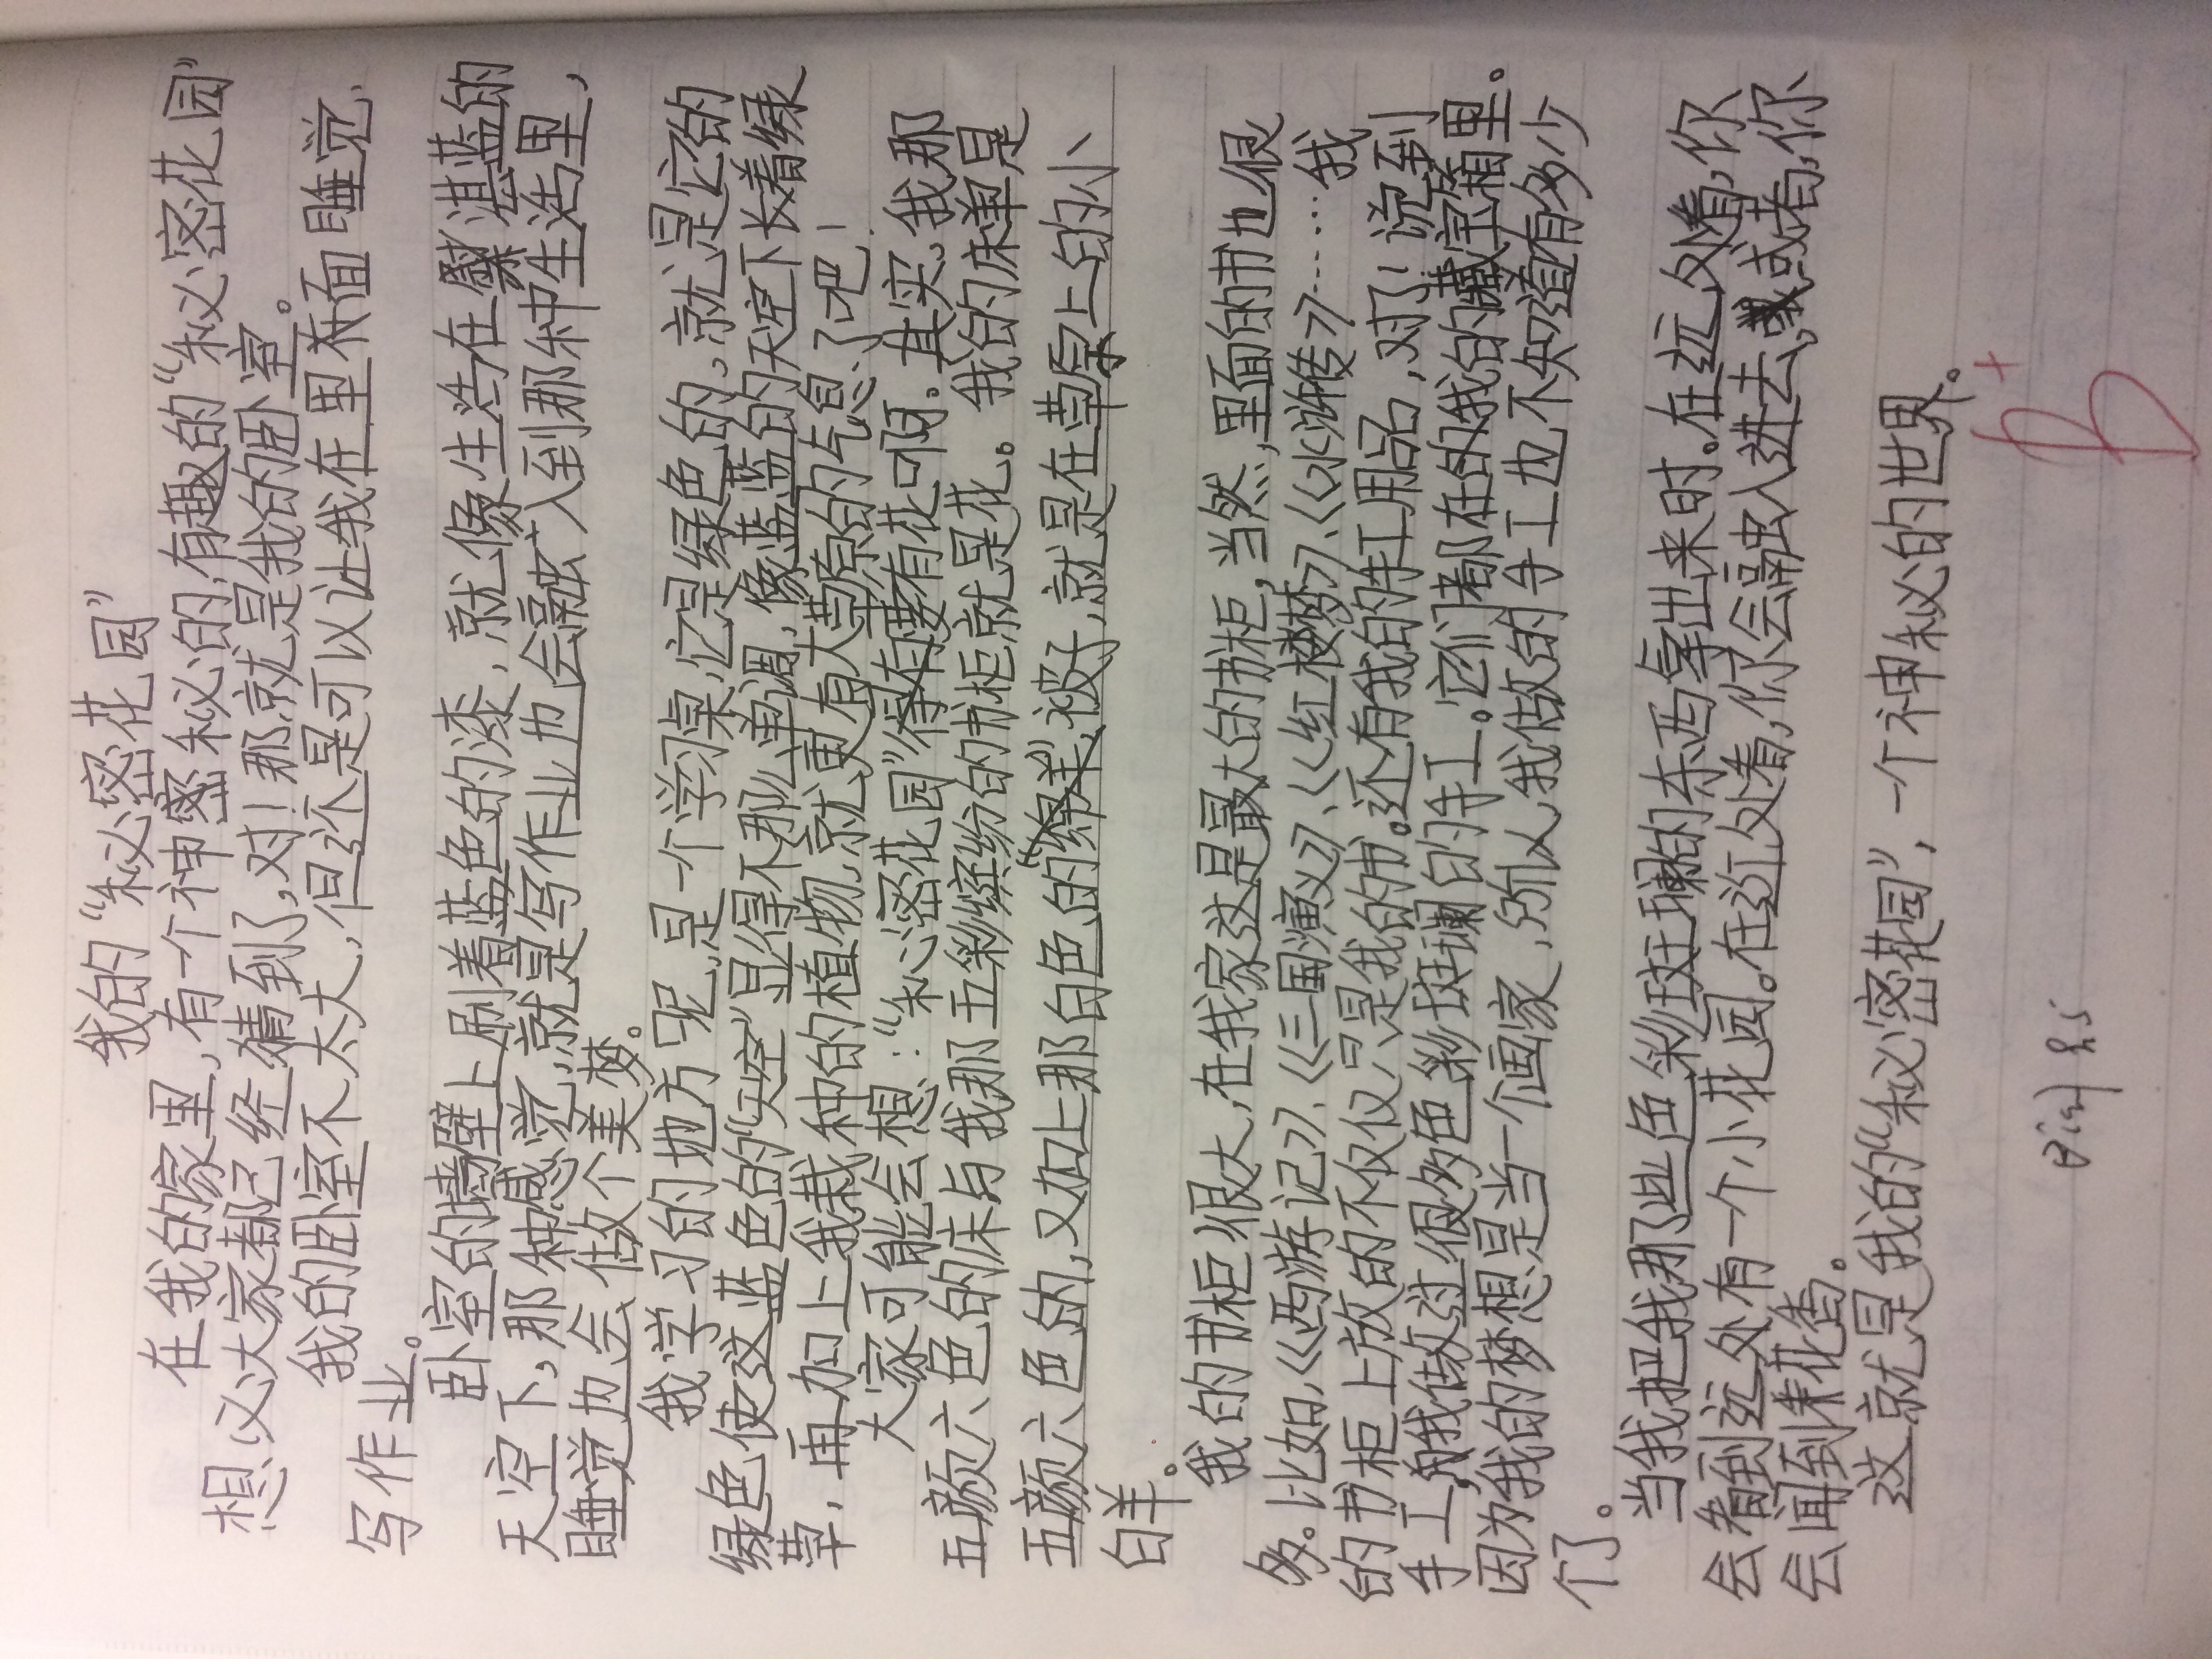 我的“秘密花园”
在我的家里，有一个神密秘的，有趣的“秘密花园”
想必大家都已经猜到了，对！那就是我的卧室。
我的卧室不太大，但还是可以让我在里面睡觉，
写作业。
卧室的墙壁上刷着蓝色的漆，就像生活在湛蓝的
天空下，那种感觉，就是写作业也会融入到那种生活里，
睡觉也会做个美梦。
我学习的地方呢，是一个学习桌，它是绿色的，就是它的
绿色使这蓝色的“天空”显得不那么单调，像蓝蓝的天空下长着绿
草，再加上我栽种的植物，就更有大草原的气息了吧！
大家可能会想：“秘密花园”得有花啊。其实，我那
五颜六色的床与我那五彩缤纷的书柜就是花。我的床单是
五颜六色的，又加上那白色的“绵羊”被子，就是在草原上的小
白羊。
我的书柜很大，在我家这是最大的书柜，当然，里面的书也很
多。比如，《西游记》、《三国演义》、《红楼梦》、《水浒传》……我
的书柜上放的不仅仅只是我的书。还有我的手工用品，对了！说到
手工，我做过很多色彩斑斓的手工。它们都在的我的藏宝箱里。
因为我的梦想是当一个画家，所以，我做的手工也不知道有多少
个了。
当我把我那些色彩斑斓的东西拿出来时。在远处看，你
会看到远处有一个小花园。在近处看，你会融入进去，或者，你
会闻到花香。
这就是我的“秘密花园”，一个神秘的世界。
B+